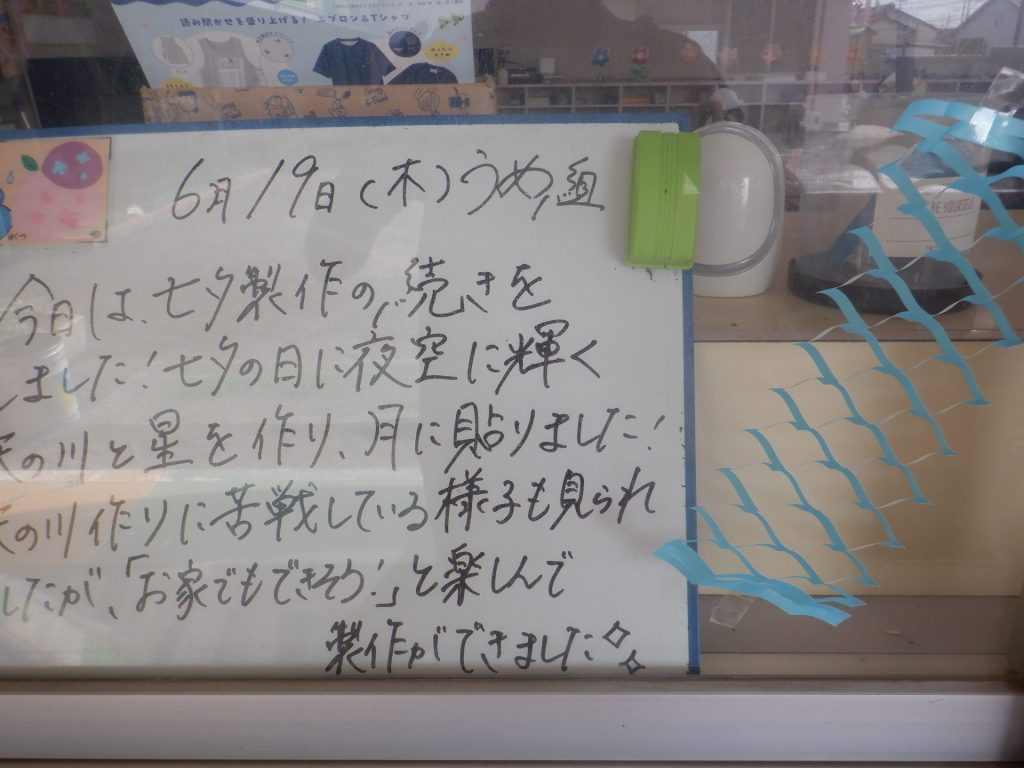 読み聞かせを盛り上げる! エプロン&Tシャツ
6月19日(木)うめ組
今日は、七夕製作の続きを
しました!七夕の日に夜空に輝く
天の川と星を作り、月に貼りました!
天の川作りに苦戦している様子も見られ
したが、「お家でもできそう!」と楽しんで
製作ができました
BE YOURSELF